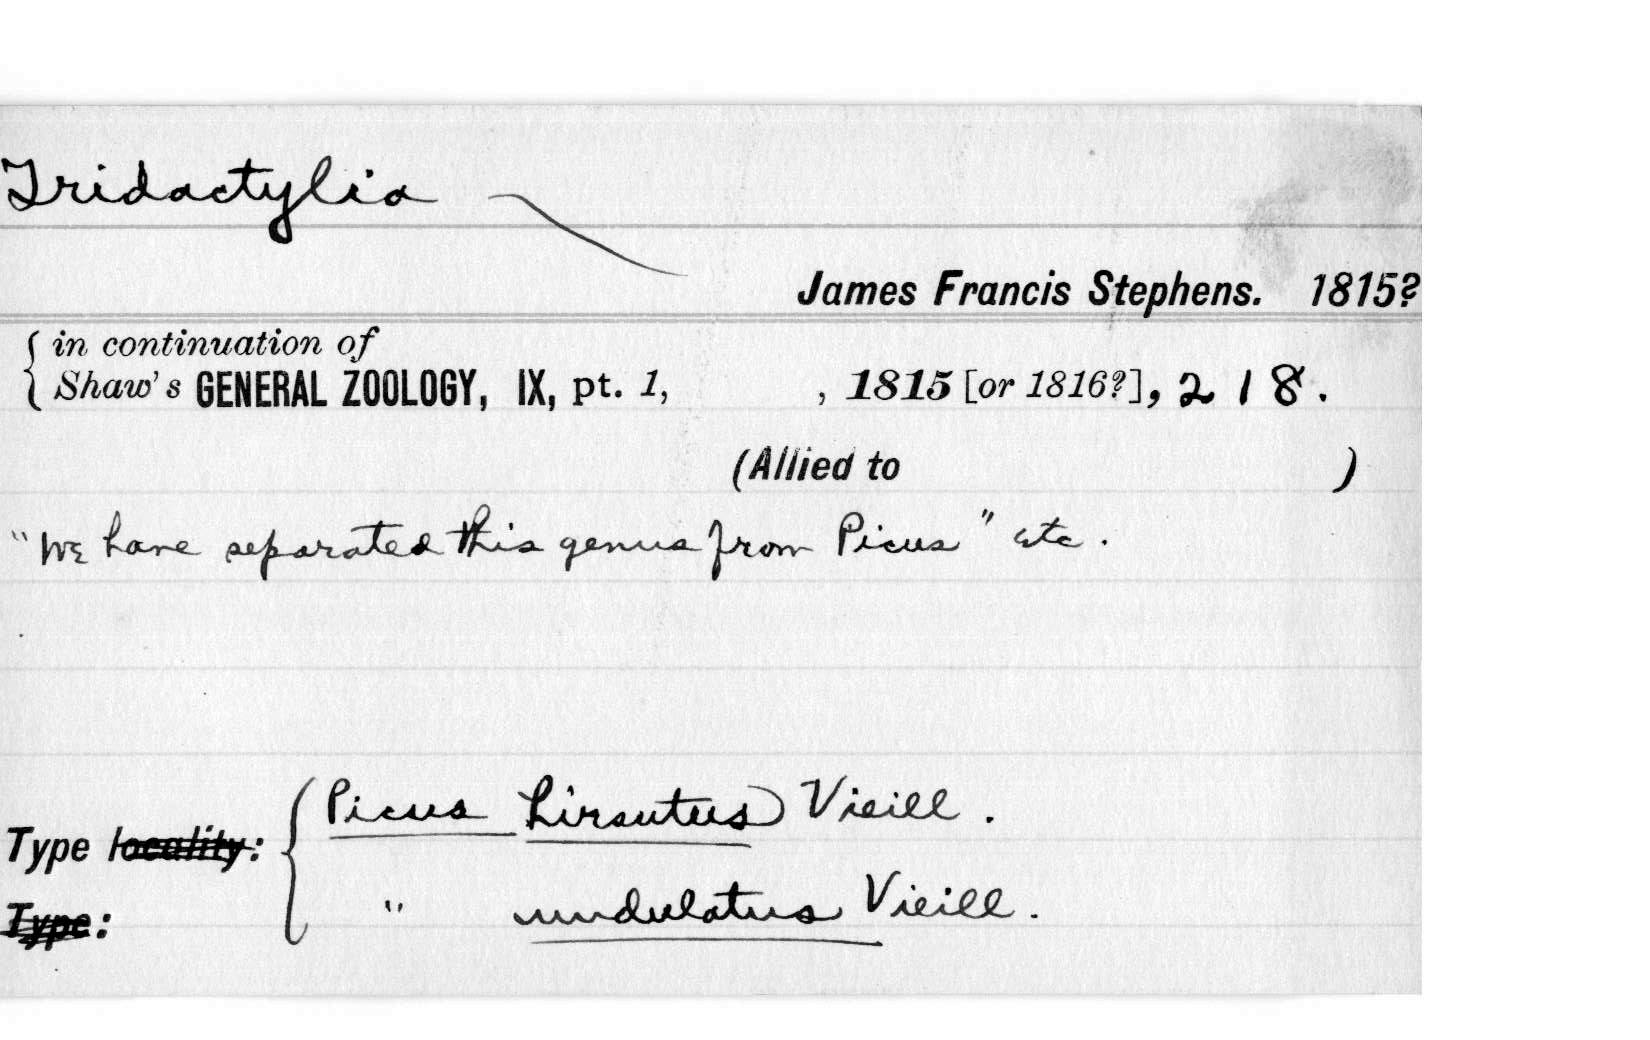 Tridactylia
James Francis Stephens. 1815?
in continuation of
Shaw's GENERAL ZOOLOGY, IX, pt. 1, , 1815 [or 1816?], 218.
(Allied to )
"We have separated this genus from Picus" etc.
Picus hirsutus Vieill.
Type locality:
" undulatus Vieill.
Type: